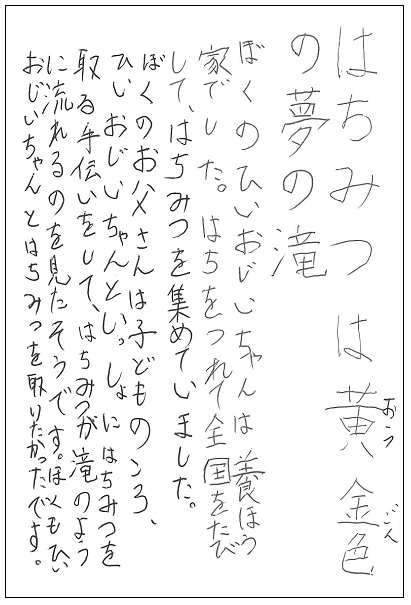 はちみつは黄金色
おう
ごん
の夢の滝
ぼくのひいおじいちゃんは養ほう
家でした。はちをつれて全国をたび
して、はちみつを集めていました。
ぼくのお父さんは子どものころ、
ひいおじいちゃんといっしょにはちみつを
取る手伝いをして、はちみつが滝のよう
に流れるのを見たそうです。ぼくもひい
おじいちゃんとはちみつを取りたかったです。